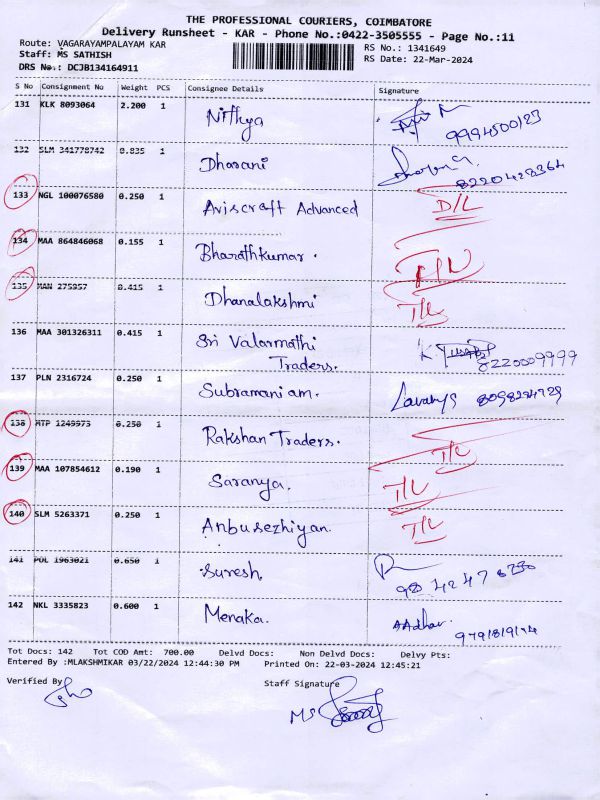 THE PROFESSIONAL COURIERS, COIMBATORE
Delivery Runsheet - KAR - Phone No.:0422-3505555 - Page No.:11
Route: VAGARAYAMPALAYAM KAR RS No.: 1341649
Staff: MS SATHISH RS Date: 22-Mar-2024
DRS No.: DCJB134164911
S No Consignment No Weight PCS Consignee Details Signature
131 KLK 8093064 2.200 1 Nithya
9994500123
132 SLM 341778742 0.835 1 Dharani
8220428364
133 NGL 100076580 0.250 1 Aviscraft Advanced D/L
134 MAA 864846068 0.155 1 Bharathkumar.
135 MAN 275957 0.415 1 Dhanalakshmi T/L
136 MAA 301326311 0.415 1 Sri Valarmathi
Traders. 8220009999
137 PLN 2316724 0.250 1 Subramaniam. Lavanya 8098234729
138 MTP 1249973 0.250 1 Rakshan Traders. T/L
139 MAA 107854612 0.190 1 Saranya. T/L
140 SLM 5263371 0.250 1 Anbusezhiyan. T/L
141 POL 1963021 0.650 1 Suresh.
142 NKL 3335823 0.600 1 Menaka. AAdhav.
Tot Docs: 142 Tot COD Amt: 700.00 Delvd Docs: Non Delvd Docs: Delvy Pts:
Entered By :MLAKSHMIKAR 03/22/2024 12:44:30 PM Printed On: 22-03-2024 12:45:21
Verified By Staff Signature
MS